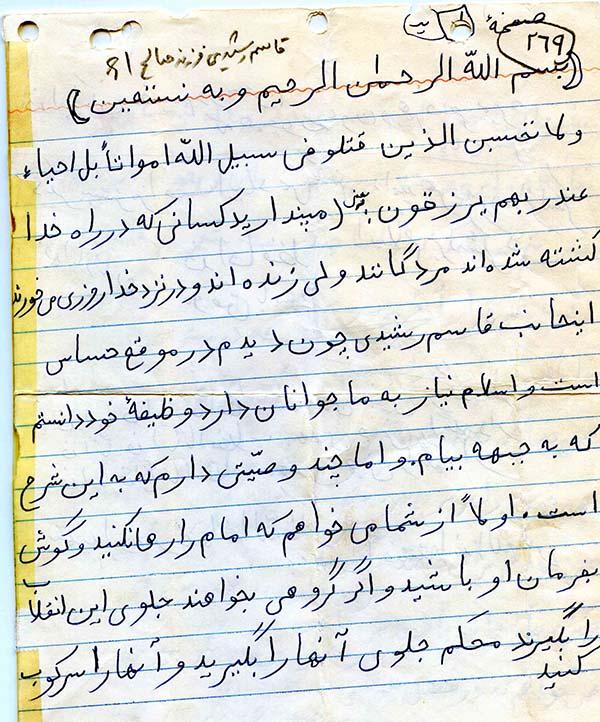 صفحهٔ
۲۶۹
قاسم رشیدی فرزند صالح ۶۱
(بسم الله الرحمان الرحیم و به نستعین)
ولا تحسبن الذین قتلو فی سبیل الله امواتاً بل احیاء
عند ربهم یرزقون (مپندارید کسانی که در راه خدا
کشته شده اند مردگانند ولی زنده اند و در نزد خدا روزی می خورند
اینجانب قاسم رشیدی چون دیدم در موقع حساس
است و اسلام نیاز به ما جوانان دارد وظیفهٔ خود دانستم
که به جبهه بیام. و اما چند وصیّتی دارم که به این شرح
است. اولاً از شما می خواهم که امام را رها نکنید و گوش
بفرمان او باشید و اگر گروهی بخواهند جلوی این انقلاب
را بگیرند محکم جلوی آنها را بگیرید و آنها را سرکوب
کنید